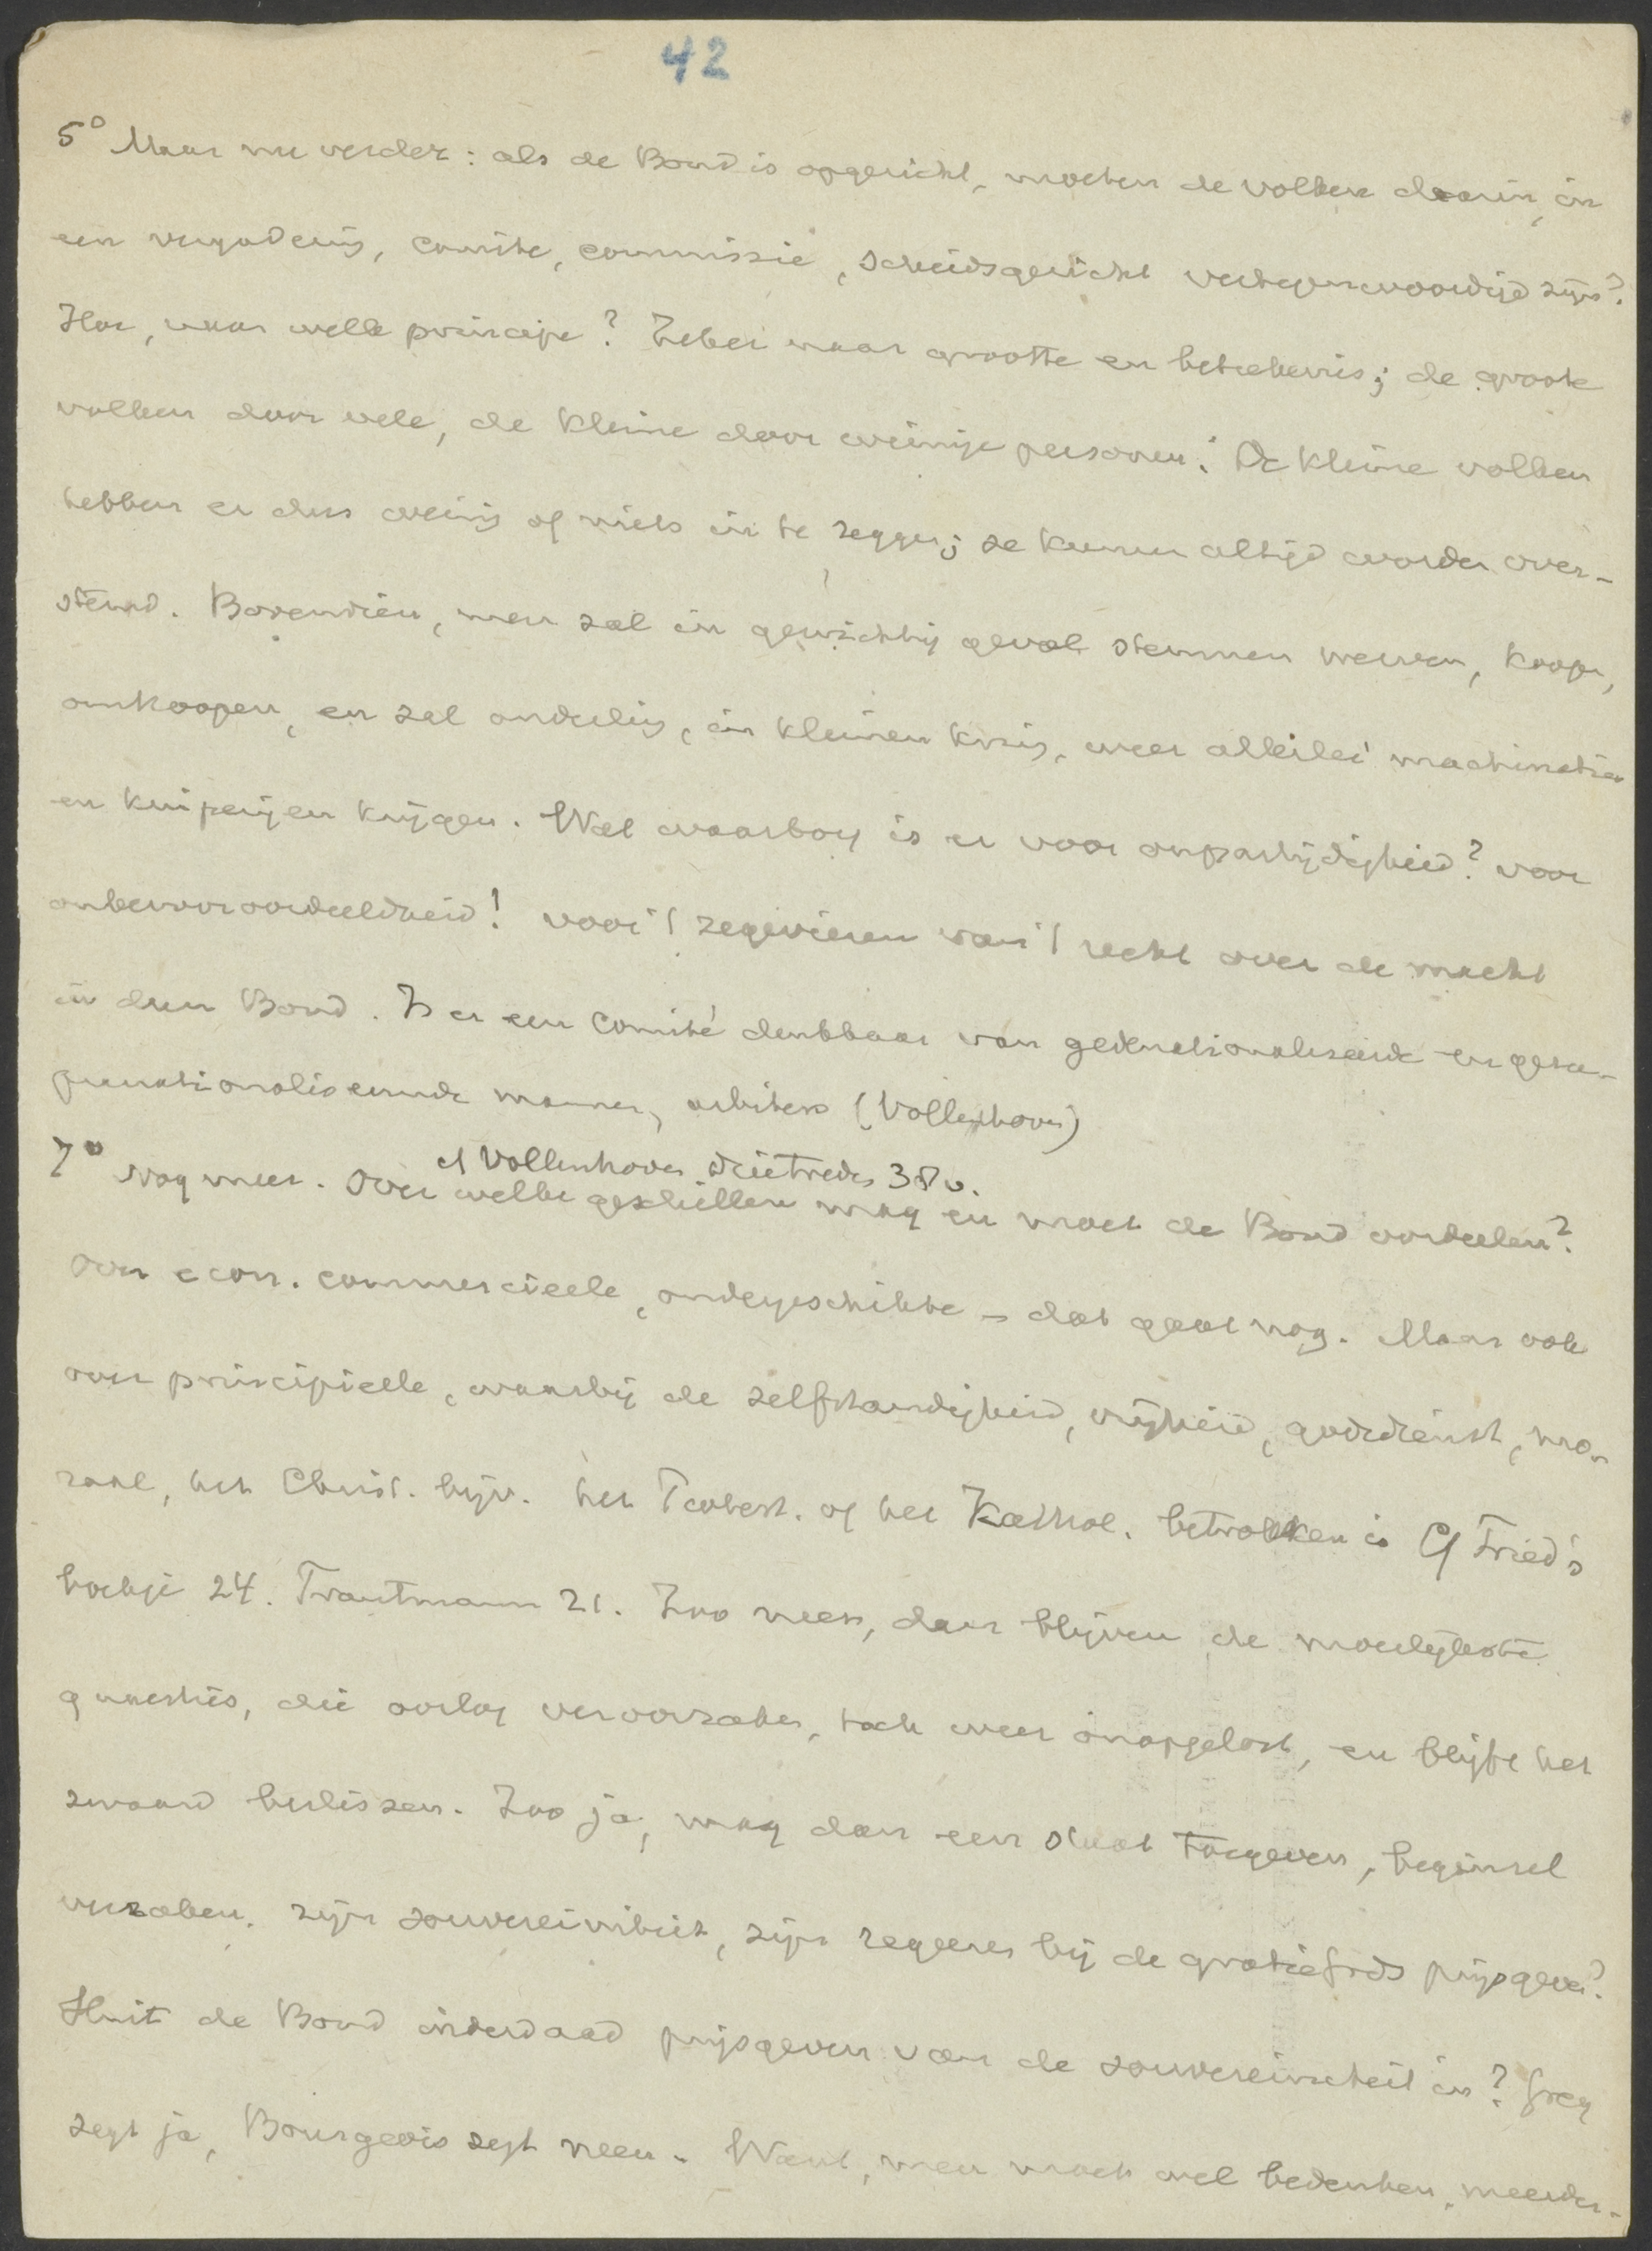 42
5° Maar nu verder: als de Bond is opgericht, moeten de volken daarin, in
een vergadering, comite, commissie, scheidsgericht vertegenwoordigd zijn?
Hoe, naar welk principe? Zeker naar grootte en beteekenis; de groote
volken door vele, de kleine door weinige personen. De kleine volken
hebben er dus weinig of niets in te zeggen; ze kunnen altijd worden over-
stemd. Bovendien, men zal in gewichtig geval stemmen werven, koopen,
omkoopen, en zal onderling, in kleinen kring, weer allerlei machinatien
en kuiperijen krijgen. Wat waarborg is er voor onpartijdigheid? voor
onbevooroordeeldheid! voor 't zegevieren van 't recht over de macht
in den Bond. Is er een comité denkbaar van gedenationaliseerde en gesu-
pranationaliseerde mannen, arbiters (Vollenhoven)
cf Vollenhoven drietreden 38v.
7° Nog meer. Over welke geschillen mag en moet de Bond oordeelen?
Over econ. commercieele, ondergeschikte - dat gaat nog. Maar ook
over principieele, waarbij de zelfstandigheid, vrijheid, godsdienst, mo-
raal, het Christ. bijv. het Protest. of het Kathol. betrokken is Cf Fried's
boekje 24. Trautmann 21. Zoo neen, dan blijven de moeilijkste
quaesties, die oorlog veroorzaken, toch weer onopgelost, en blijft het
zwaard beslissen. Zoo ja, mag dan een staat toegeven, beginsel
verzaken. zijn souvereiniteit, zijn regeeren bij de gratie Gods prijsgeven?
Sluit de Bond inderdaad prijsgeven van de souvereiniteit in? Grey
zegt ja, Bourgeois zegt neen. Want, men moet wel bedenken, meerder-